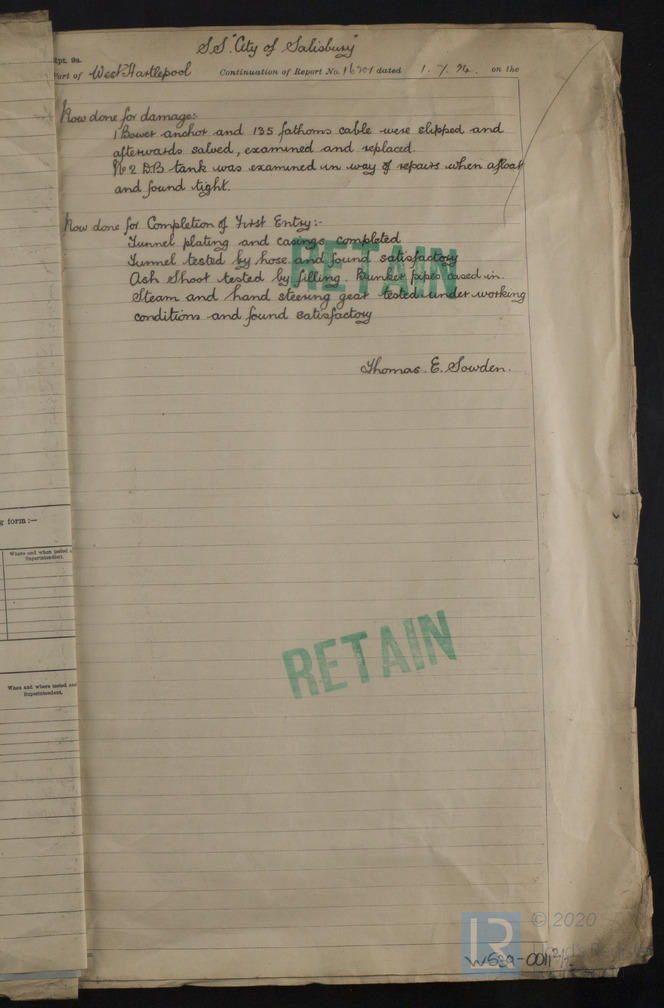 S.S. "City of Salisbury"
Rpt. 9a.
Port of West Hartlepool Continuation of Report No. 16701 dated 1. 7. 24. on the
Now done for damage:
1 Bower anchor and 135 fathoms cable were slipped and
afterwards salved, examined and replaced.
No 2 D.B. tank was examined in way of repairs when afloat
and found tight.
Now done for Completion of First Entry:-
Tunnel plating and casings completed
Tunnel tested by hose and found satisfactory
Ash Shoot tested by filling. Bunker pipes cased in.
Steam and hand steering gear tested under working
conditions and found satisfactory
RETAIN
Thomas. E. Sowden.
g form :—
Where and when tested
Superintendent.
RETAIN
When and where tested and
Superintendent.
© 2020
LR
Lloyd's Register